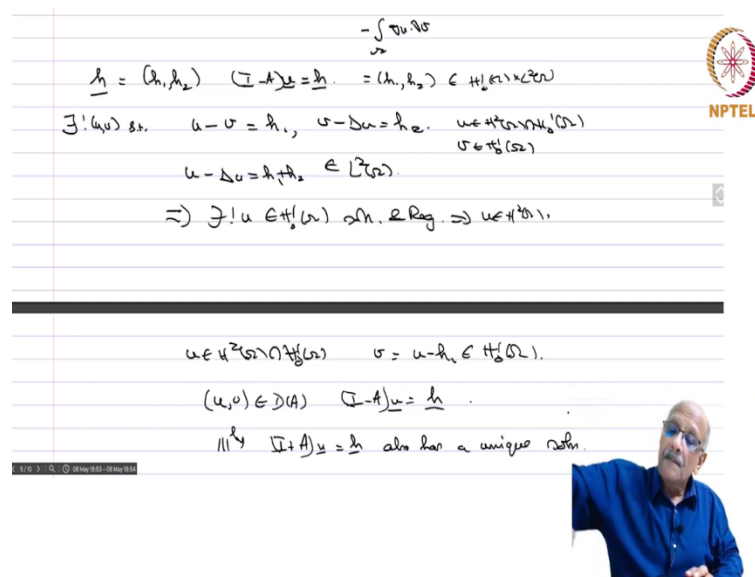 -∫_Ω ∇u.∇v
h = (h₁,h₂) (I-A)u = h. = (h₁,h₂) ∈ H₀¹(Ω)×L²(Ω)
NPTEL
∃!(u,v) s.t. u-v = h₁, v-Δu = h₂. u∈H²(Ω)∩H₀¹(Ω)
v∈H₀¹(Ω)
u-Δu = h₁+h₂ ∈ L²(Ω).
⇒ ∃! u ∈ H₀¹(Ω) soln. & Reg. ⇒ u∈H²(Ω).
u∈H²(Ω)∩H₀¹(Ω) v = u-h₁ ∈ H₀¹(Ω).
(u,v) ∈ D(A) (I-A)u = h .
|||ly (I+A)u = h also has a unique soln.
5/10 08 May 18:53 - 08 May 18:54